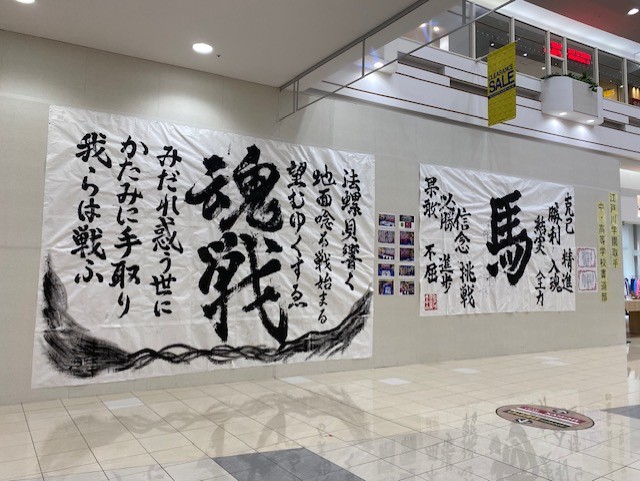 法螺貝響く
地面唸る戦始まる
望むゆくすゑ
魂戦
みだれ惑う世に
かたみに手取り
我らは戦ふ
克己 精進
勝利 入魂
結実 全力
馬
信念 挑戦
必勝 進歩
果敢 不屈
江戸川学園取手
中・高等学校書道部
CLEARANCE
SALE